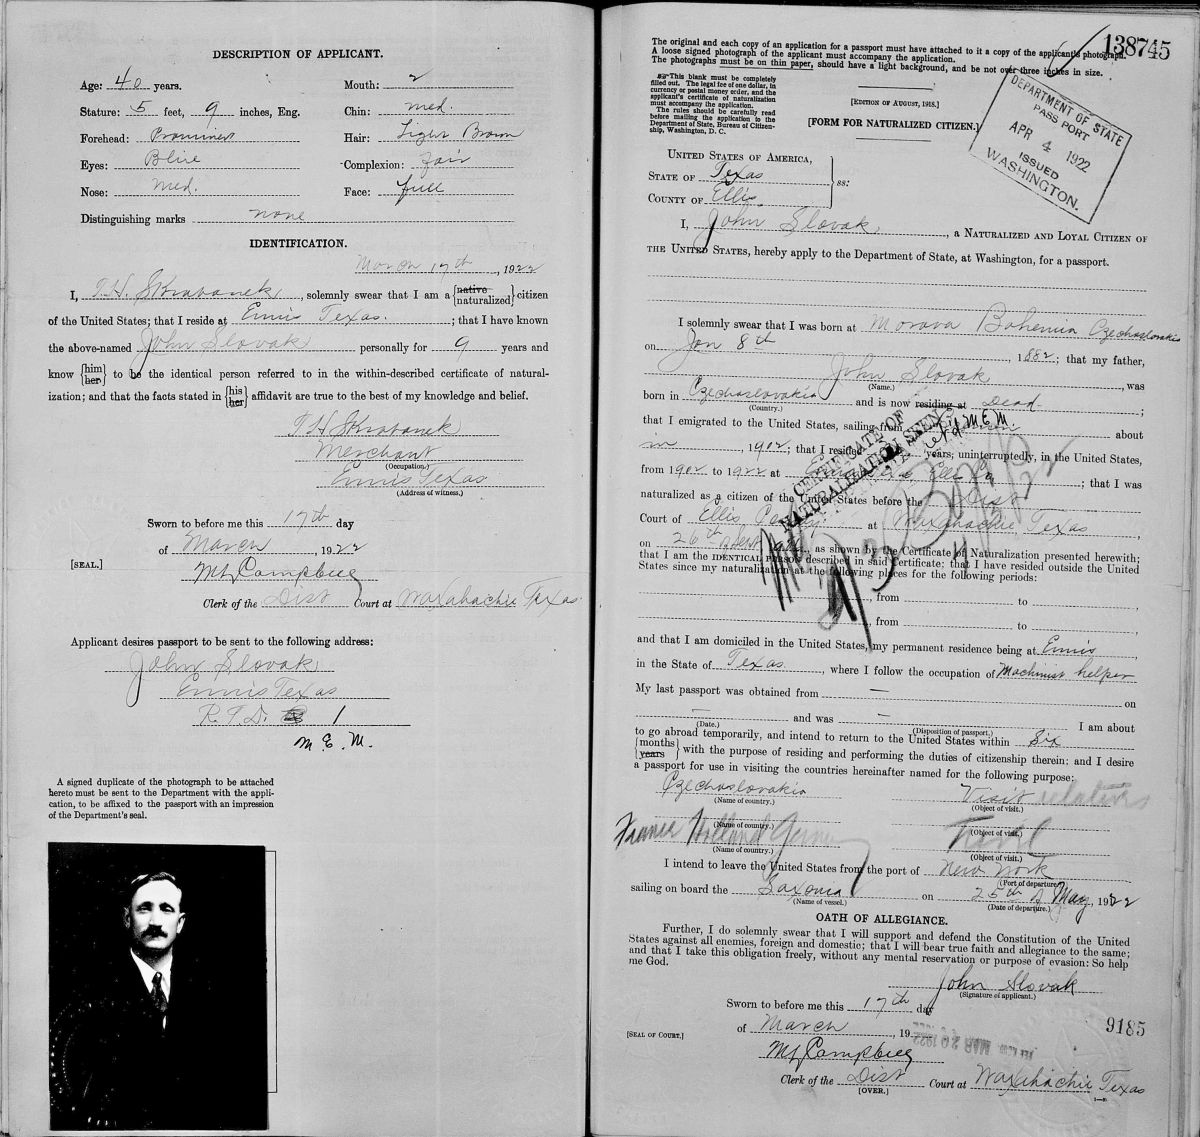 DESCRIPTION OF APPLICANT.
Age: 40 years. Mouth: 2
Stature: 5 feet, 9 inches, Eng. Chin: med.
Forehead: Prominent Hair: Brown
Eyes: Blue Complexion: Fair
Nose: Med. Face: full
Distinguishing marks none
IDENTIFICATION.
March 17th, 1922
I, T. H. Skrabanek, solemnly swear that I am a {native naturalized} citizen
of the United States; that I reside at Ennis Texas.; that I have known
the above-named John Slovak personally for 9 years and
know {him her} to be the identical person referred to in the within-described certificate of natural-
ization; and that the facts stated in {his her} affidavit are true to the best of my knowledge and belief.
T H Skrabanek
Merchant
(Occupation.)
Ennis Texas
(Address of witness.)
Sworn to before me this 17th day
of March, 1922
[SEAL.]
Campbell
Clerk of the Dist Court at Waxahachie Texas.
Applicant desires passport to be sent to the following address:
John Slovak
Ennis Texas
R.F.D. 1
M. E. M.
A signed duplicate of the photograph to be attached
hereto must be sent to the Department with the appli-
cation, to be affixed to the passport with an impression
of the Department's seal.
138745
The original and each copy of an application for a passport must have attached to it a copy of the applicant's photograph.
A loose signed photograph of the applicant must accompany the application.
The photographs must be on thin paper, should have a light background, and be not over three inches in size.
This blank must be completely
filled out. The legal fee of one dollar, in
currency or postal money order, and the
applicant's certificate of naturalization
must accompany the application.
The rules should be carefully read
before mailing the application to the
Department of State, Bureau of Citizen-
ship, Washington, D. C.
[EDITION OF AUGUST, 1918.]
[FORM FOR NATURALIZED CITIZEN.]
DEPARTMENT OF STATE
PASSPORT
APR 4 1922
ISSUED
WASHINGTON.
UNITED STATES OF AMERICA,
STATE OF Texas
COUNTY OF Ellis
ss:
I, John Slovak, a NATURALIZED AND LOYAL CITIZEN OF
THE UNITED STATES, hereby apply to the Department of State, at Washington, for a passport.
I solemnly swear that I was born at Morava Bohemia Czechoslovakia
on Jan 8th, 1882; that my father,
John Slovak, was
(Name.)
born in Czechoslovakia and is now residing at Dead;
(Country.)
that I emigrated to the United States, sailing from about
, 1902; that I resided years, uninterruptedly, in the United States,
from 1902 to 1922 at; that I was
naturalized as a citizen of the United States before the Dist
Court of Ellis at Waxahachie Texas,
on 26th Sept, as shown by the Certificate of Naturalization presented herewith;
that I am the IDENTICAL PERSON described in said Certificate; that I have resided outside the United
States since my naturalization at the following places for the following periods:
CERTIFICATE OF
NATURALIZATION SEEN
M.E.M
, from to,
, from to,
and that I am domiciled in the United States, my permanent residence being at Ennis,
in the State of Texas, where I follow the occupation of Machinist helper
My last passport was obtained from — on
— and was — I am about
(Date.) (Disposition of passport.)
to go abroad temporarily, and intend to return to the United States within Six
{months years} with the purpose of residing and performing the duties of citizenship therein; and I desire
a passport for use in visiting the countries hereinafter named for the following purpose:
Czechoslovakia Visit relatives
(Name of country.) (Object of visit.)
(Name of country.) (Object of visit.)
France Holland
(Name of country.) (Object of visit.)
I intend to leave the United States from the port of New York
(Port of departure.)
sailing on board the Saxonia on 25th of May, 1922
(Name of vessel.) (Date of departure.)
OATH OF ALLEGIANCE.
Further, I do solemnly swear that I will support and defend the Constitution of the United
States against all enemies, foreign and domestic; that I will bear true faith and allegiance to the same;
and that I take this obligation freely, without any mental reservation or purpose of evasion: So help
me God.
John Slovak
(Signature of applicant.)
Sworn to before me this 17th day
of March, 19
9185
MAR 20 1922
[SEAL OF COURT.]
Campbell
Clerk of the Dist Court at Waxahachie Texas
[OVER.]